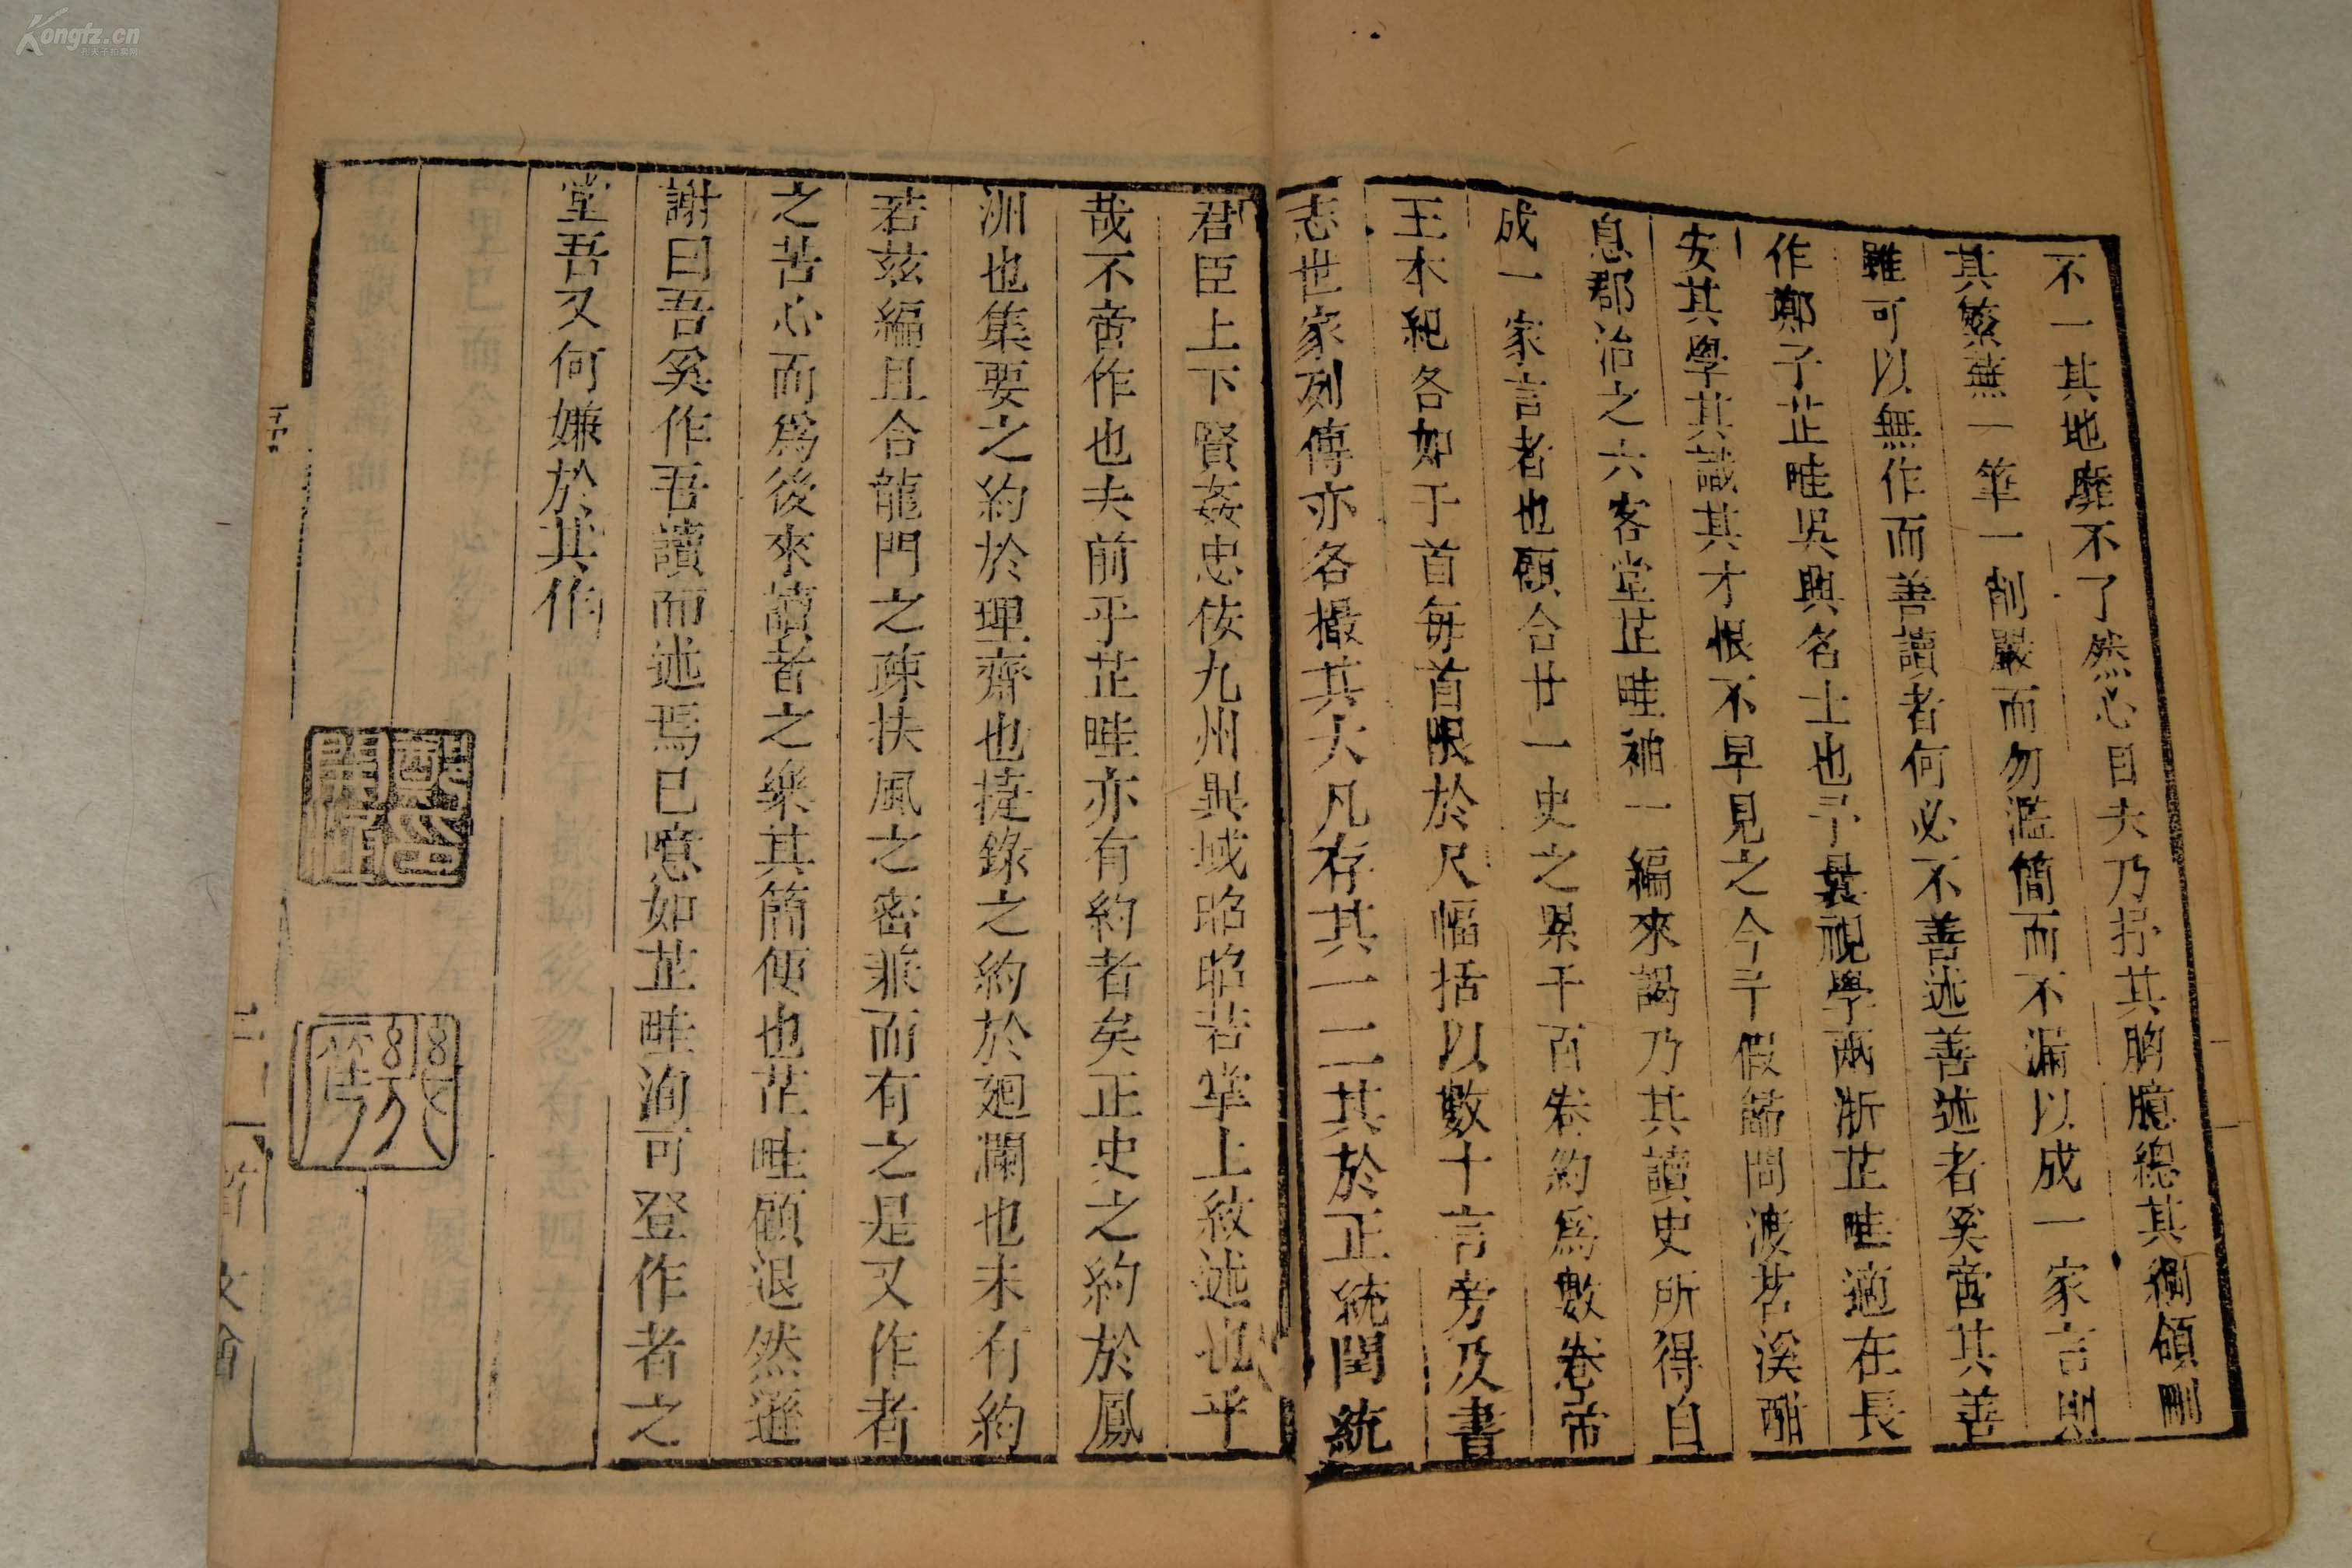 不一其地靡不了然心目夫乃抒其胸臆總其綱領剛
其繁蕪一筆一削嚴而勿濫簡而不漏以成一家言則
雖可以無作而善讀者何必不善述善述者奚啻其善
作鄭子芷畦吳興名士也予曩視學兩浙芷畦適在長
安其學其識其才恨不早見之今年假節問渡苕溪
息郡治之六客堂芷畦袖一編來謁乃其讀史所得自
成一家言者也顧合廿一史之累千百卷約爲數卷帝
王本紀各如干首每首限於尺幅括以數十言旁及書
志世家列傳亦各撮其大凡存其一二其於正統閏統
君臣上下賢姦忠佞九州異域昭昭若掌上紋述也乎
哉不啻作也夫前乎芷畦亦有約者矣正史之約於鳳
洲也集要之約於理齋也捷錄之約於廻瀾也未有約
若茲編且合龍門之疎扶風之密兼而有之是又作者
之苦心而爲後來讀者之樂其簡便也芷畦顧退然遜
謝曰吾奚作吾讀而述焉已噫如芷畦洵可登作者之
堂吾又何嫌於其作
Kongfz.cn